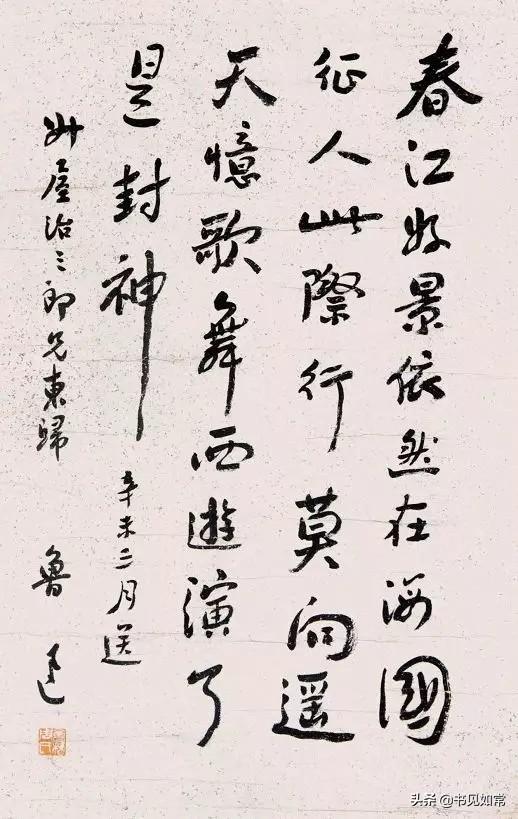 春江好景依然在海國
征人此際行莫向遥
天憶歌舞西遊演了
是封神 辛未二月送
升屋治三郎兄東歸 魯迅
头条 @书见如常